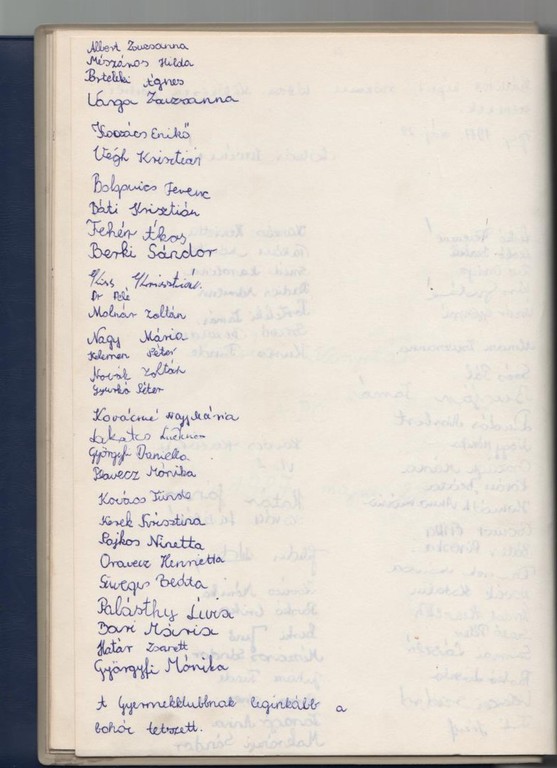 Albert Zsuzsanna
Mészáros Hilda
Bertekki Ágnes
Varga Zsuzsanna
Kovács Enikő
Végh Krisztián
Bolgovics Ferenc
Báti Krisztián
Fehér Ákos
Berki Sándor
Kiss Krisztián
Molnár Zoltán
Nagy Mária
Kelemen Péter
Novák Zoltán
Gyurkó Péter
Kovácsné Nagy Mária
Lakatos
Györgyfi Daniella
Ravecz Mónika
Kovács Tünde
Kerek Krisztina
Sajkos Ninetta
Oravecz Henrietta
Süveges Beáta
Palásthy Lívia
Bari Mária
Határ Zsanett
Györgyfi Mónika
A Gyermekklubbnak leginkább a
bohóc tetszett.